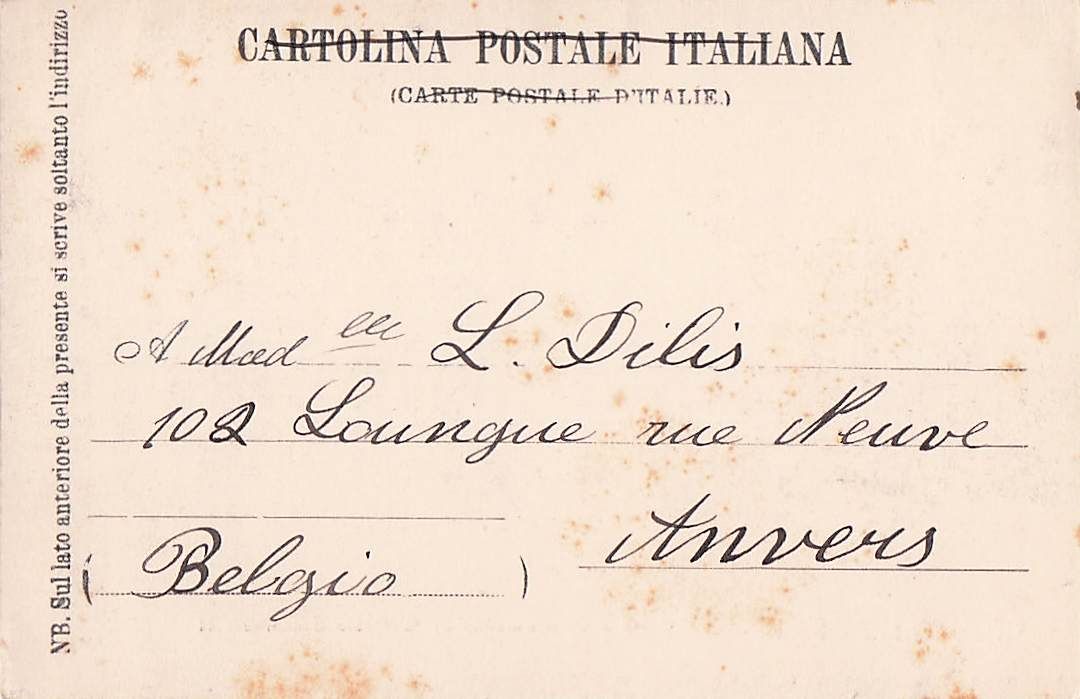 CARTOLINA POSTALE ITALIANA
(CARTE POSTALE D'ITALIE.)
NB. Sul lato anteriore della presente si scrive soltanto l'indirizzo
A Mad elle L. Dilis
102 Loungue rue Neuve
Anvers
(Belgio)